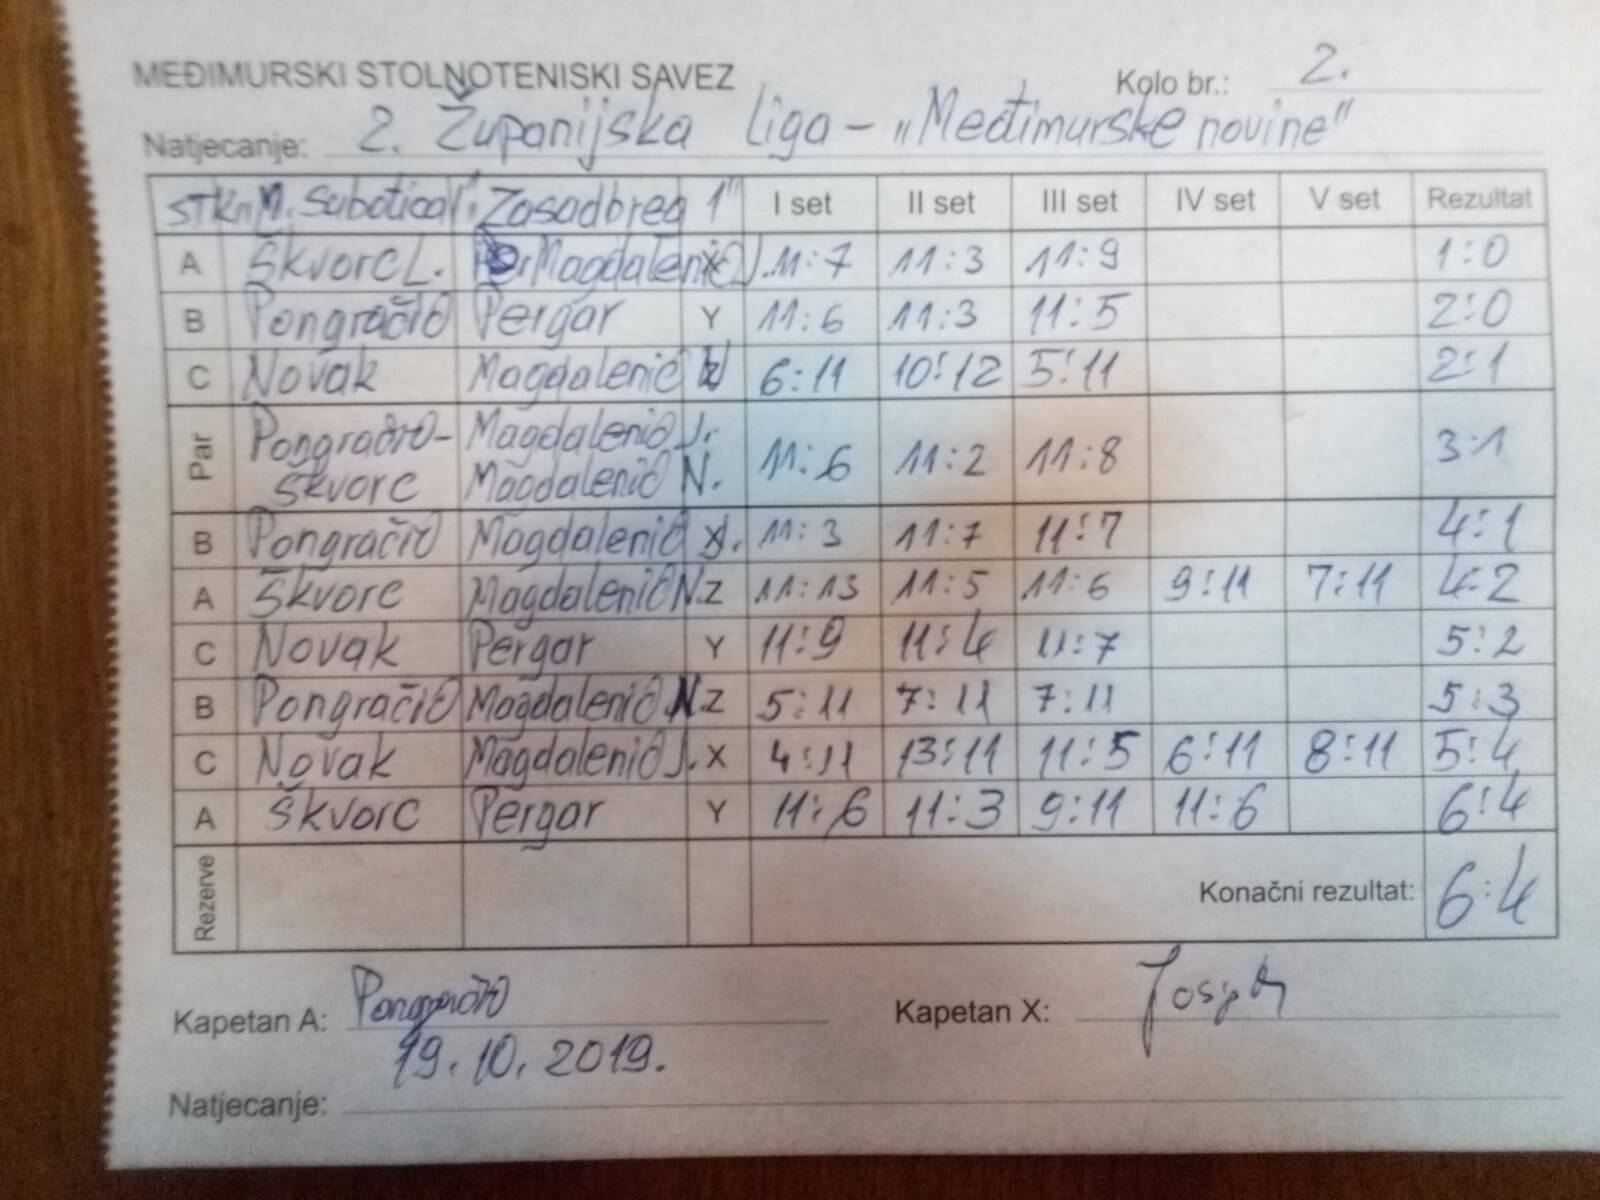 MEĐIMURSKI STOLNOTENISKI SAVEZ Kolo br.: 2.
Natjecanje: 2. Županijska liga - „Međimurske novine"
STK„M. Subotica" „Zasadbreg 1" I set II set III set IV set V set Rezultat
A Škvorc L. Magdalenić J. X 11:7 11:3 11:9 1:0
B Pongračić Pergar Y 11:6 11:3 11:5 2:0
C Novak Magdalenić N Z 6:11 10:12 5:11 2:1
Par Pongračić- Magdalenić J. 11:6 11:2 11:8 3:1
Škvorc Magdalenić N.
B Pongračić Magdalenić J. X 11:3 11:7 11:7 4:1
A Škvorc Magdalenić N. Z 11:13 11:5 11:6 9:11 7:11 4:2
C Novak Pergar Y 11:9 11:4 11:7 5:2
B Pongračić Magdalenić N. Z 5:11 7:11 7:11 5:3
C Novak Magdalenić J. X 4:11 13:11 11:5 6:11 8:11 5:4
A Škvorc Pergar Y 11:6 11:3 9:11 11:6 6:4
Rezerve Konačni rezultat: 6:4
Kapetan A: Pongračić Kapetan X:
19.10.2019.
Natjecanje: